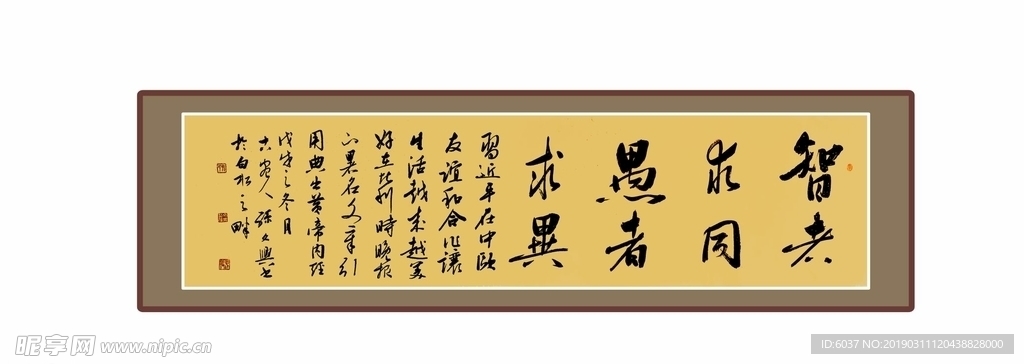 智者
求同
愚者
求異
習近平在中歐
友誼和合作讓
生活越來越美
好在比利時晚報
上署名文章引
用典出黃帝内經
戊戌之冬月
古
於白松之畔
昵享网 www.nipic.cn
ID:6037 NO:20190311120438828000